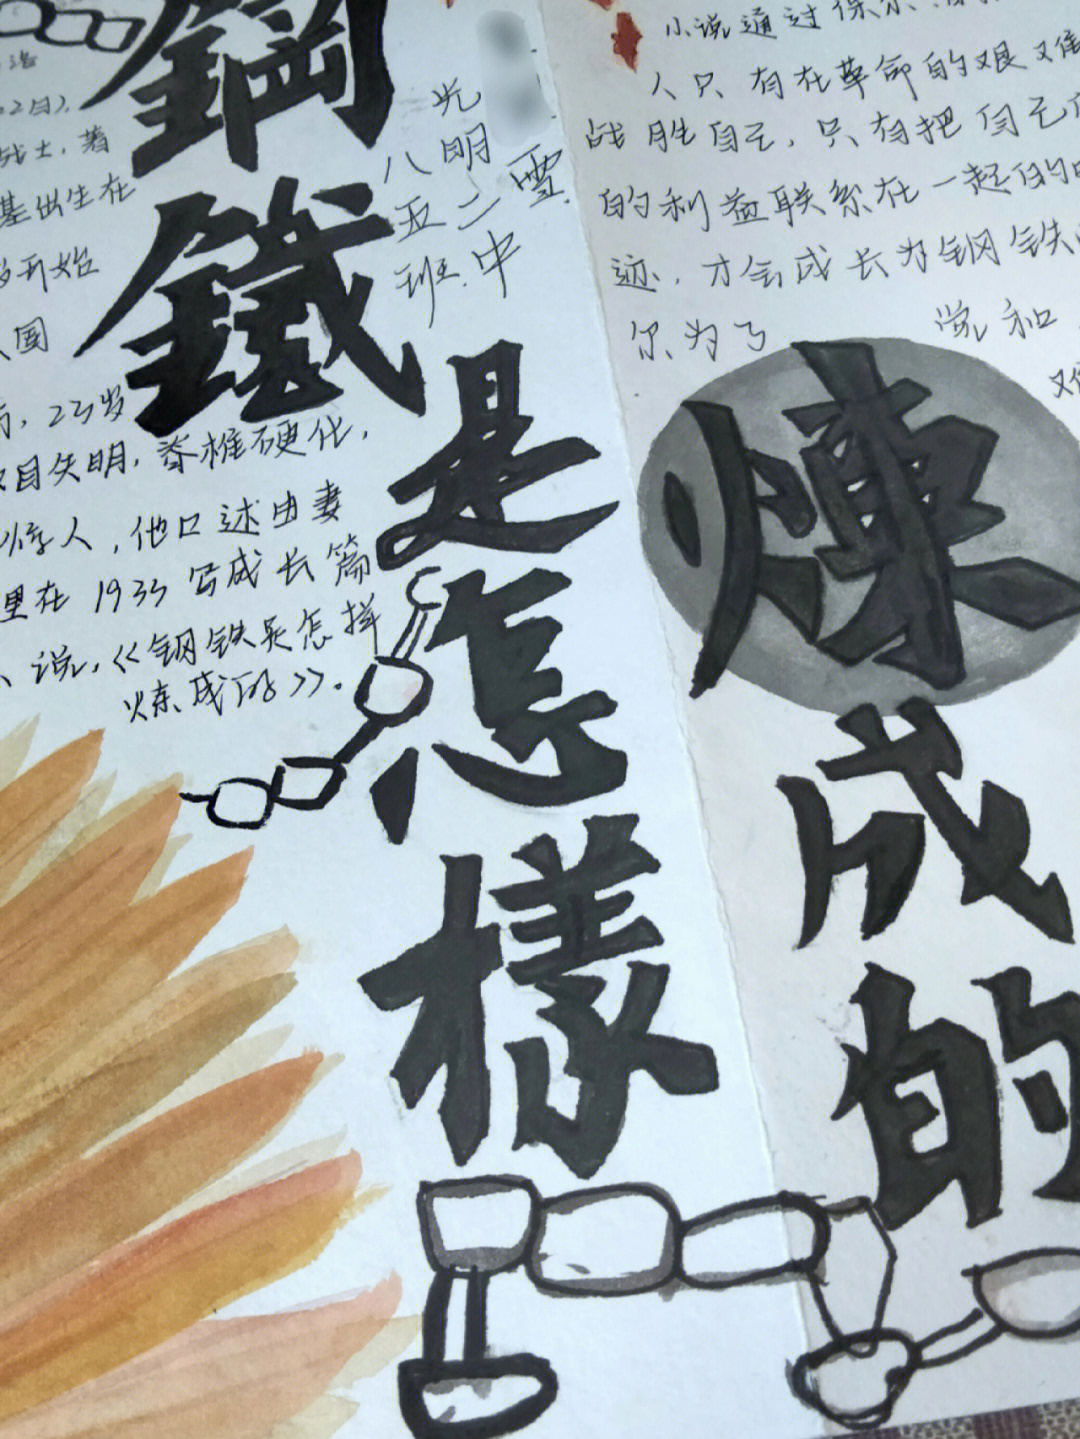 鋼
鐵
是
怎
樣
煉
成
的
2日),
战士,著
基出生在
开始
国
,23岁
目失明,脊椎硬化,
惊人,他口述由妻
里在1933写成长篇
小说,《钢铁是怎样
炼成的》.
光明二中
八五班.
雪
小说通过保尔
人只有在革命的艰难
战胜自己,只有把自己
的利益联系在一起的时
迹,才会成长为钢铁
尔为了
党和